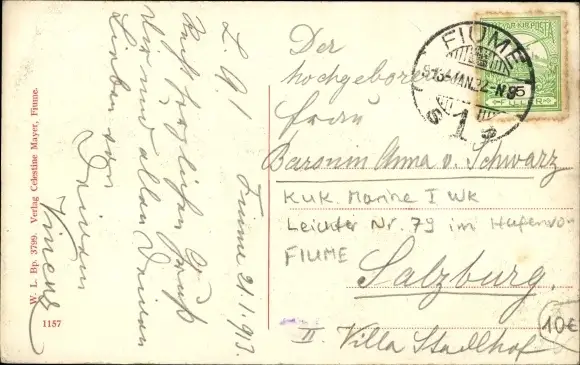 L. A!
Recht herzlichen Gruß
Dir und allen Deinen
Lieben von
Deinem
Fiume 21.1.913.
W. L. Bp. 3799. Verlag Celestine Mayer, Fiume.
1157
MAGYAR KIR. POSTA
FILLÉR
FIUME
Der
hochgeborenen
Frau
Baronin Anna v. Schwarz
KuK. Marine I WK
Leichter Nr. 79 im Hafen von
FIUME
Salzburg.
II Villa Stadlhof
10€